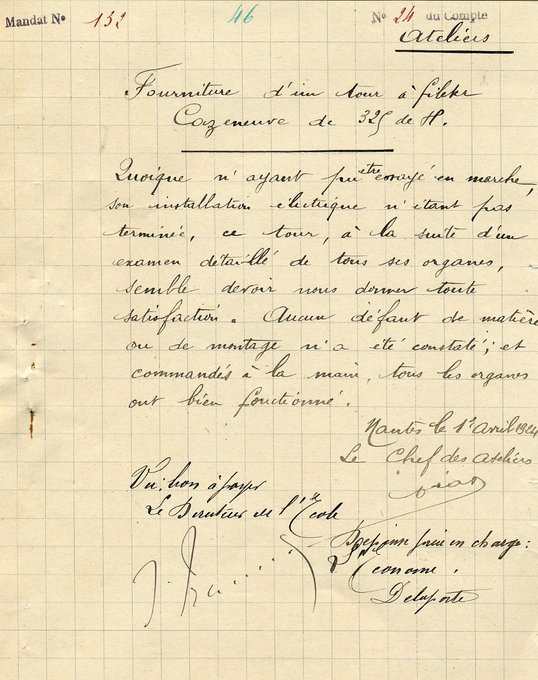 Mandat Nº 132 46 Nº 24 du Compte
Ateliers
Fourniture d'un tour à fileter
Cazeneuve de 325 de H.
Quoique n'ayant pu être essayé en marche,
son installation électrique n'étant pas
terminée, ce tour, à la suite d'un
examen détaillé de tous ses organes,
semble devoir nous donner toute
satisfaction. Aucun défaut de matière
ou de montage n'a été constaté; et
commandés à la main, tous les organes
ont bien fonctionné.
Nantes le 1er Avril 1924
Le Chef des Ateliers
Vu: bon à payer
Le Directeur de l'Ecole
Dépense prise en charge:
L'Econome.
Delaporte